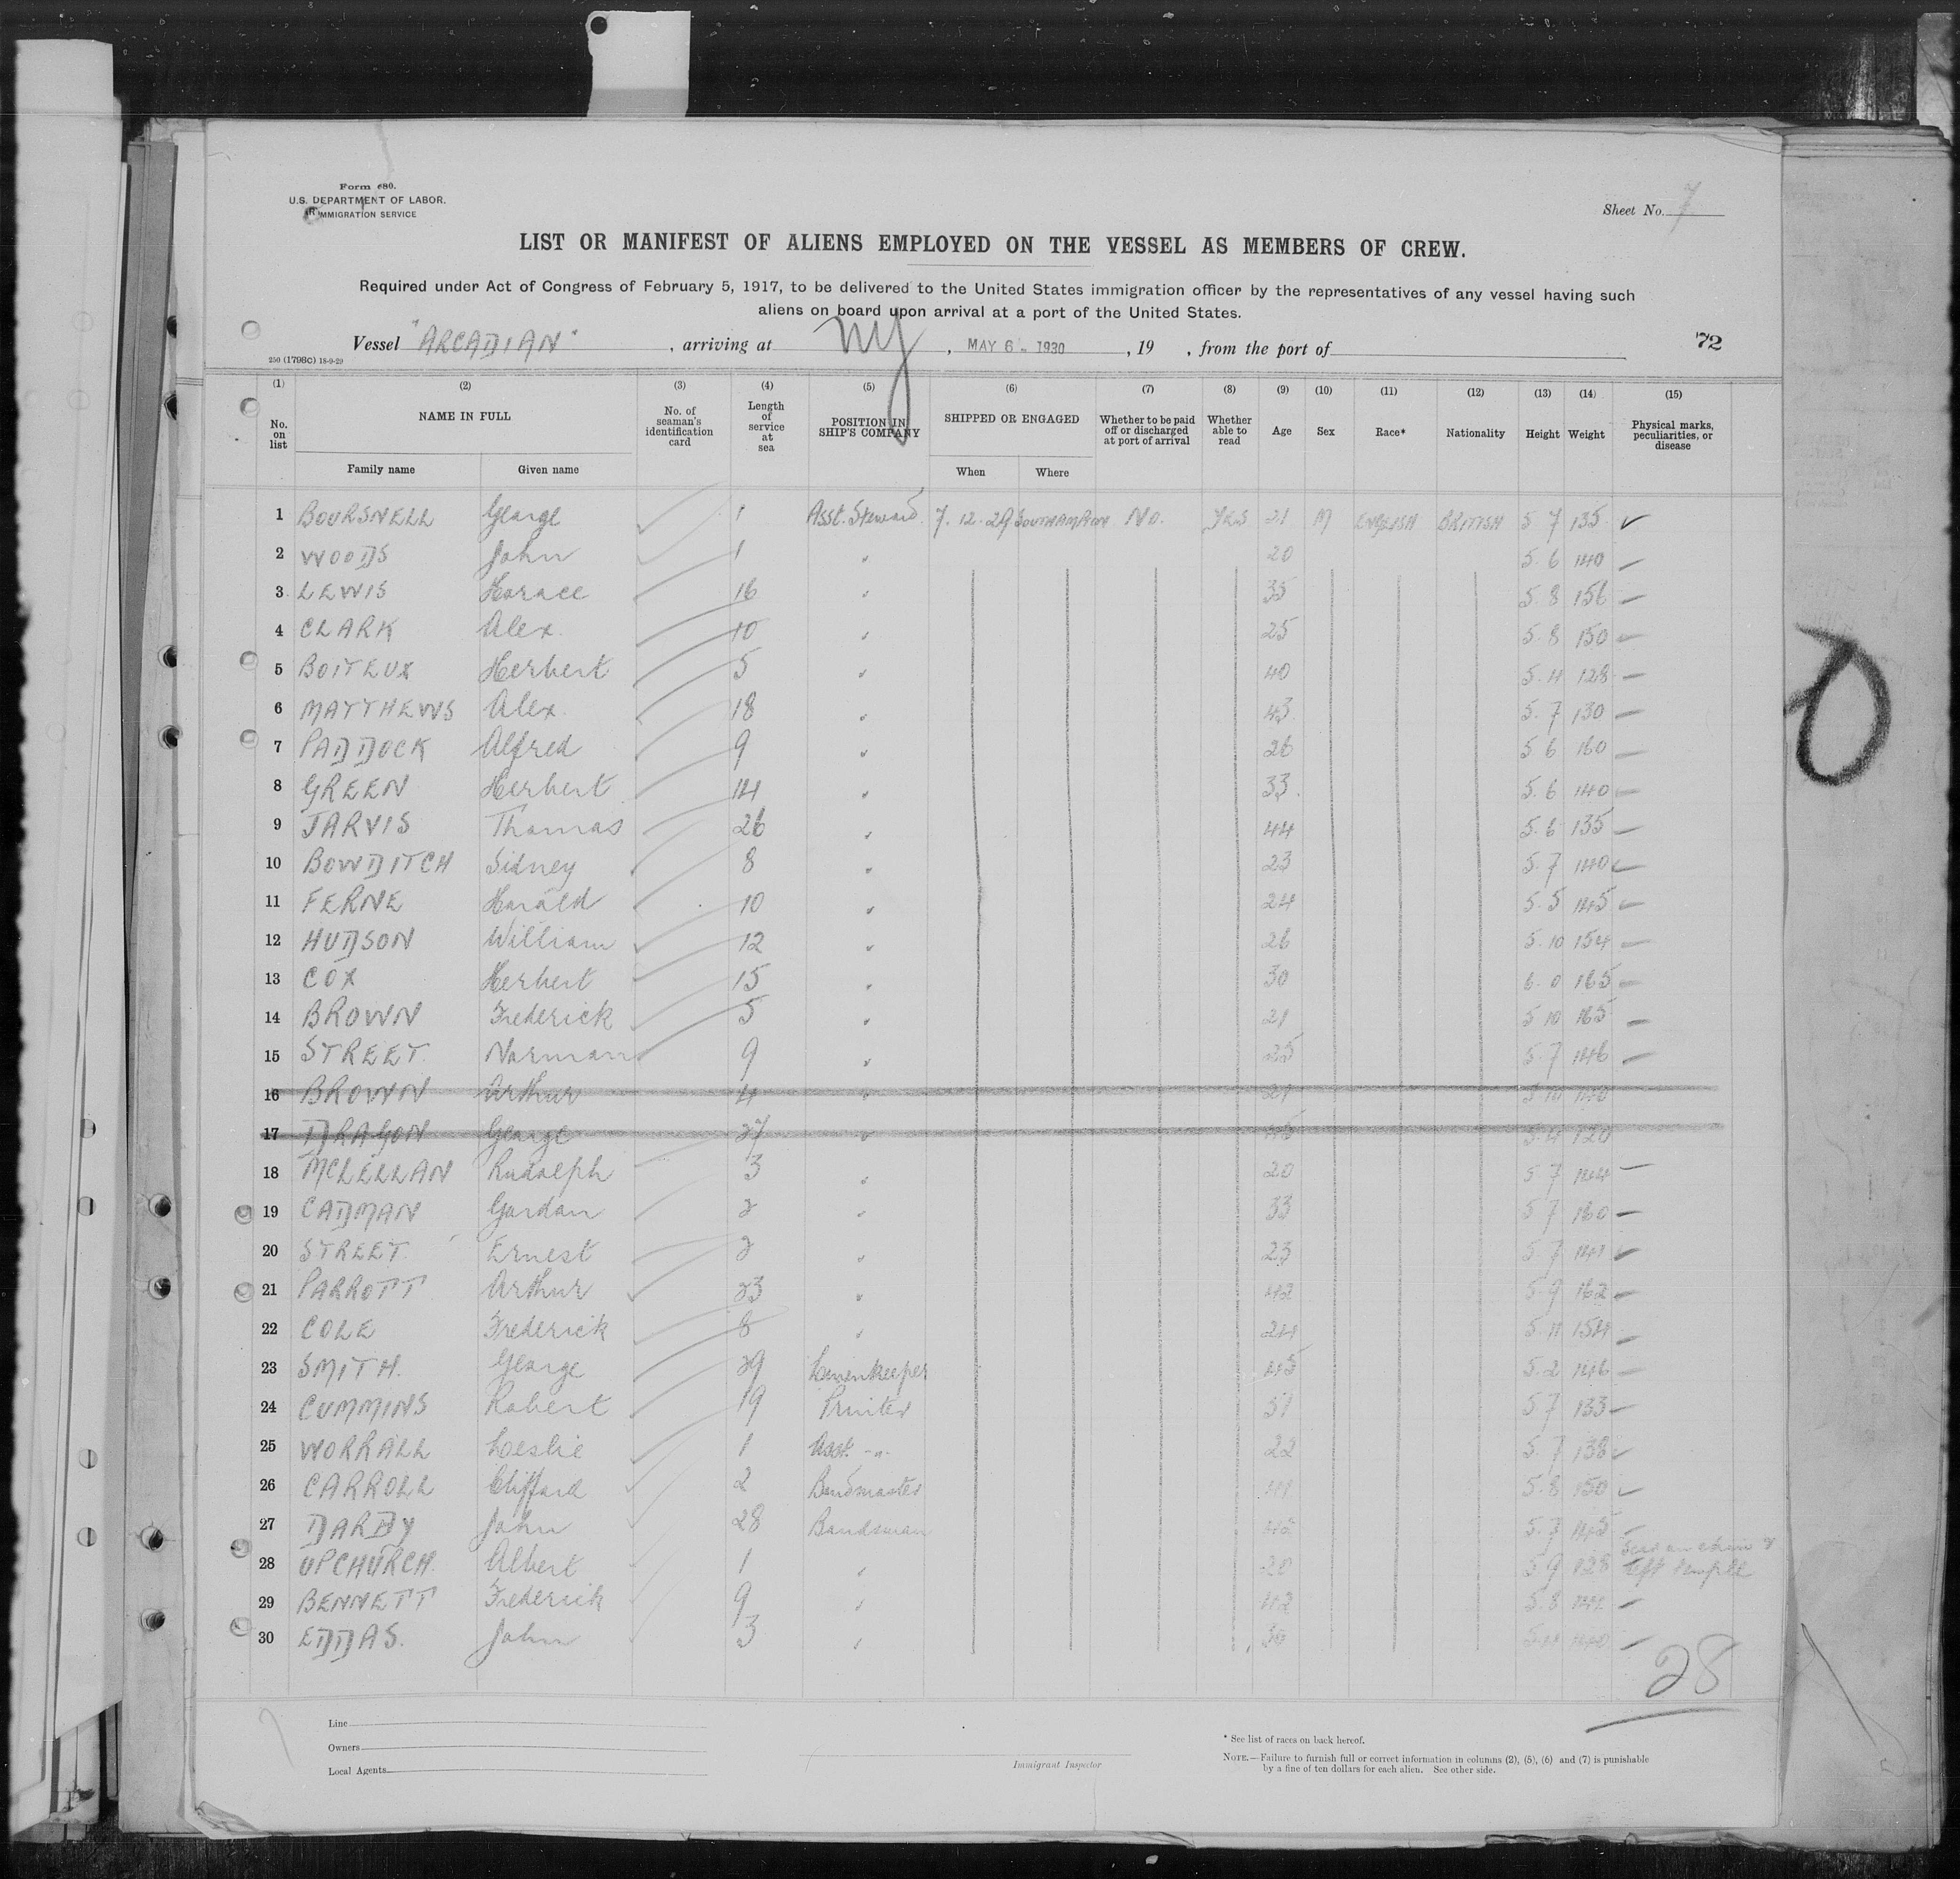 Form 680.
U.S. DEPARTMENT OF LABOR.
IMMIGRATION SERVICE
Sheet No. 7
LIST OR MANIFEST OF ALIENS EMPLOYED ON THE VESSEL AS MEMBERS OF CREW.
Required under Act of Congress of February 5, 1917, to be delivered to the United States immigration officer by the representatives of any vessel having such
aliens on board upon arrival at a port of the United States.
Vessel "ARCADIAN", arriving at NY, MAY 6 - 1930, 19 , from the port of
72
250 (1798C) 18-9-29
(1) (2) (3) (4) (5) (6) (7) (8) (9) (10) (11) (12) (13) (14) (15)
No. on list
NAME IN FULL
Family name Given name
No. of seaman's identification card
Length of service at sea
POSITION IN SHIP'S COMPANY
SHIPPED OR ENGAGED
When Where
Whether to be paid off or discharged at port of arrival
Whether able to read
Age Sex Race* Nationality Height Weight
Physical marks, peculiarities, or disease
1 BOURSNELL George 1 Asst. Steward 7.12.29 SOUTHAMPTON No. YES 21 M ENGLISH BRITISH 5 7 135
2 WOODS John 1 " 20 5.6 140
3 LEWIS Horace 16 " 35 5.8 156
4 CLARK Alex. 10 " 25 5.8 150
5 BOITEUX Herbert 5 " 40 5.4 128
6 MATTHEWS Alex. 18 " 43 5.7 130
7 PADDOCK Alfred 9 " 26 5 6 160
8 GREEN Herbert 14 " 33. 5.6 140
9 JARVIS Thomas 26 " 44 5.6 135
10 BOWDITCH Sidney 8 " 23 5.7 140
11 FERNE Harold 10 " 24 5 5 145
12 HUDSON William 12 " 26 5.10 154
13 COX Herbert 15 " 30 6.0 165
14 BROWN Frederick 5 " 21 5 10 165
15 STREET. Norman 9 " 25 5.7 146
16 BROWN Arthur 4 " 21 5 10 140
17 DRAGON George 27 " 5.4 120
18 MCLELLAN Rudolph 3 " 20 5 7 144
19 CADMAN Gordon 2 " 33 5 7 160
20 STREET. Ernest 2 " 23 5.7 141
21 PARROTT Arthur 23 " 42 5.9 162
22 COLE Frederick 8 " 24 5.11 154
23 SMITH. George 29 Linenkeeper 45 5.2 146
24 CUMMINS Robert 19 Printer 5 7 133
25 WORRALL Leslie 1 Asst. -"- 22 5.7 138
26 CARROLL Clifford 2 Bandmaster 5.8 150
27 DARBY John 28 Bandsman 42 5.7 145
28 UPCHURCH. Albert 1 " 20 5 9 128 Scar on chin & left temple
29 BENNETT Frederick 9 " 42 5.8
30 EDDAS. John 3 " 30 140
28
Line
Owners
Local Agents
Immigrant Inspector
* See list of races on back hereof.
NOTE.—Failure to furnish full or correct information in columns (2), (5), (6) and (7) is punishable
by a fine of ten dollars for each alien. See other side.